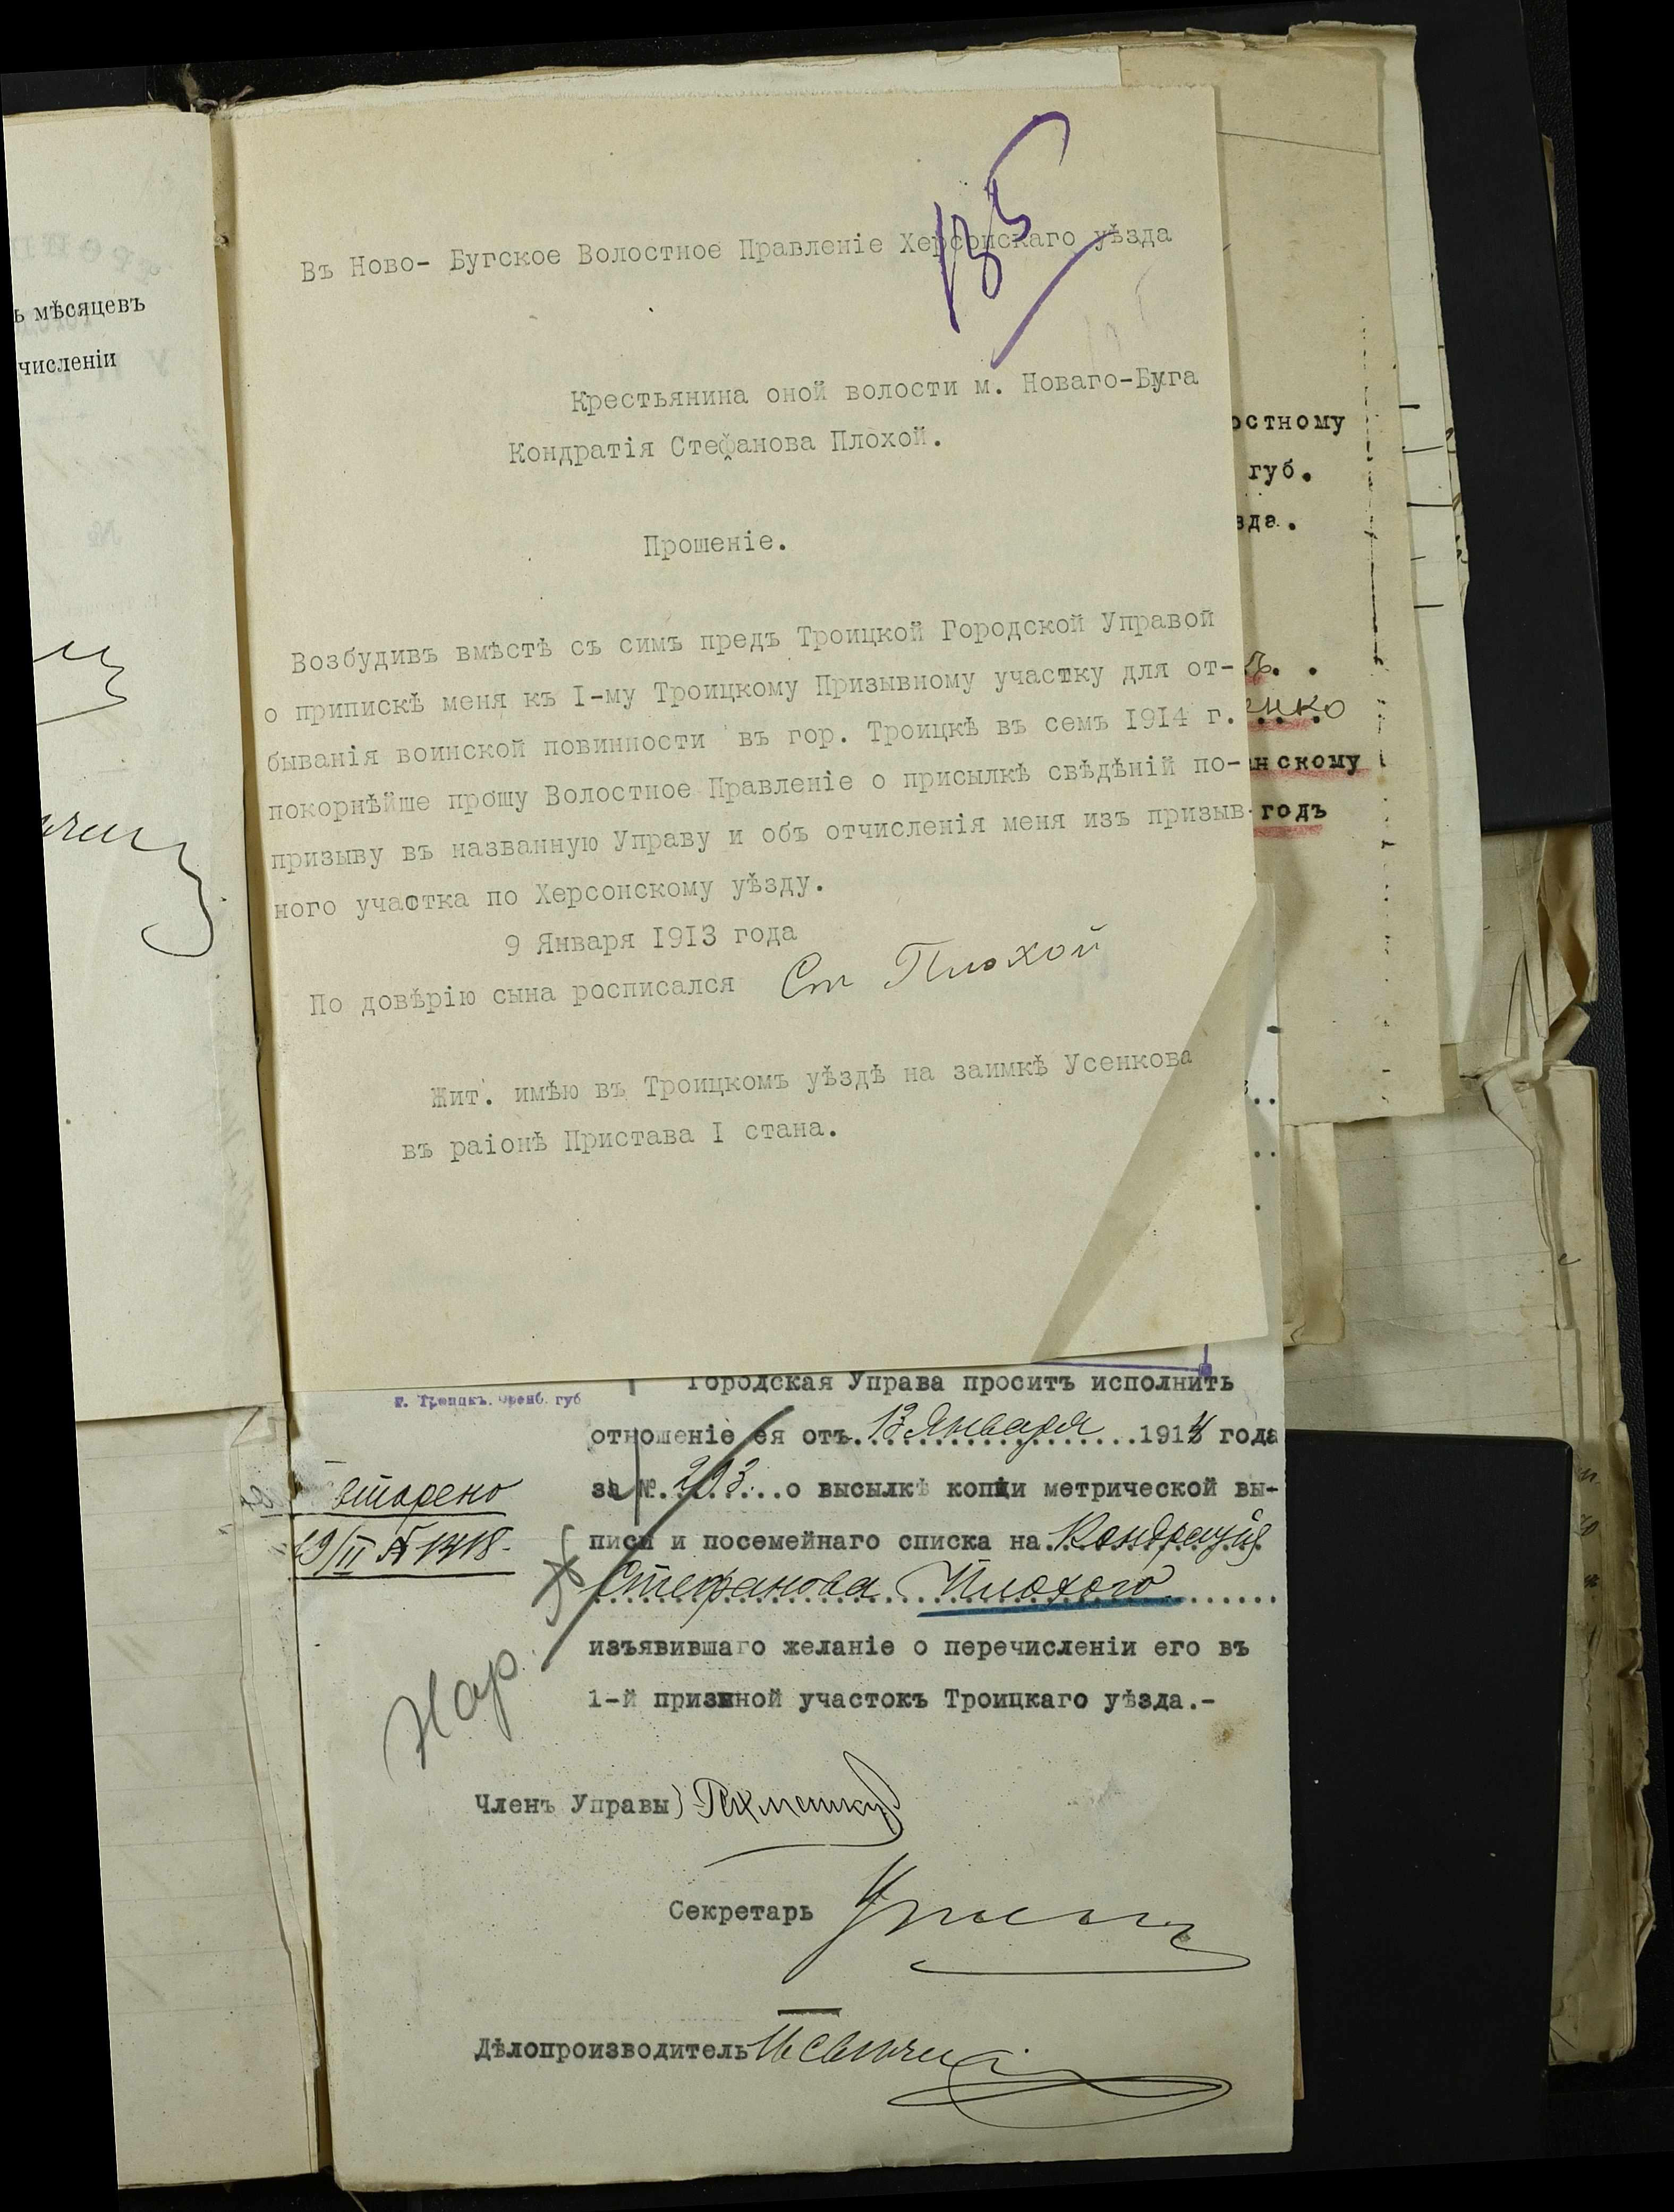 ь мѣсяцевъ
численіи
195
Въ Ново- Бугское Волостное Правленіе Херсонскаго уѣзда
Крестьянина оной волости м. Новаго-Буга
Кондратія Стефанова Плохой.
Прошеніе.
Возбудивъ вмѣстѣ съ симъ предъ Троицкой Городской Управой
о припискѣ меня къ I-му Троицкому Призывному участку для от-
быванія воинской повинности въ гор. Троицкѣ въ семъ 1914 г.
покорнѣйше прошу Волостное Правленіе о присылкѣ свѣдѣній по-
призыву въ названную Управу и объ отчисленія меня изъ призыв-
ного участка по Херсонскому уѣзду.
9 Января 1913 года
По довѣрію сына росписался Ст Плохой
Жит. имѣю въ Троицкомъ уѣздѣ на заимкѣ Усенкова
въ раіонѣ Пристава I стана.
остному
губ.
зда.
енко
нскому
годъ
г. Троицкъ. Оренб. губ
Городская Управа проситъ исполнить
отношеніе ея отъ 13 Января 1914 года
за № 293 о высылкѣ копіи метрической вы-
писи и посемейнаго списка на Кондратія
Стефанова Плохого
изъявившаго желаніе о перечисленіи его въ
1-й призывной участокъ Троицкаго уѣзда.-
19/II № 1418.
Нар.
Членъ Управы
Секретарь
Дѣлопроизводитель